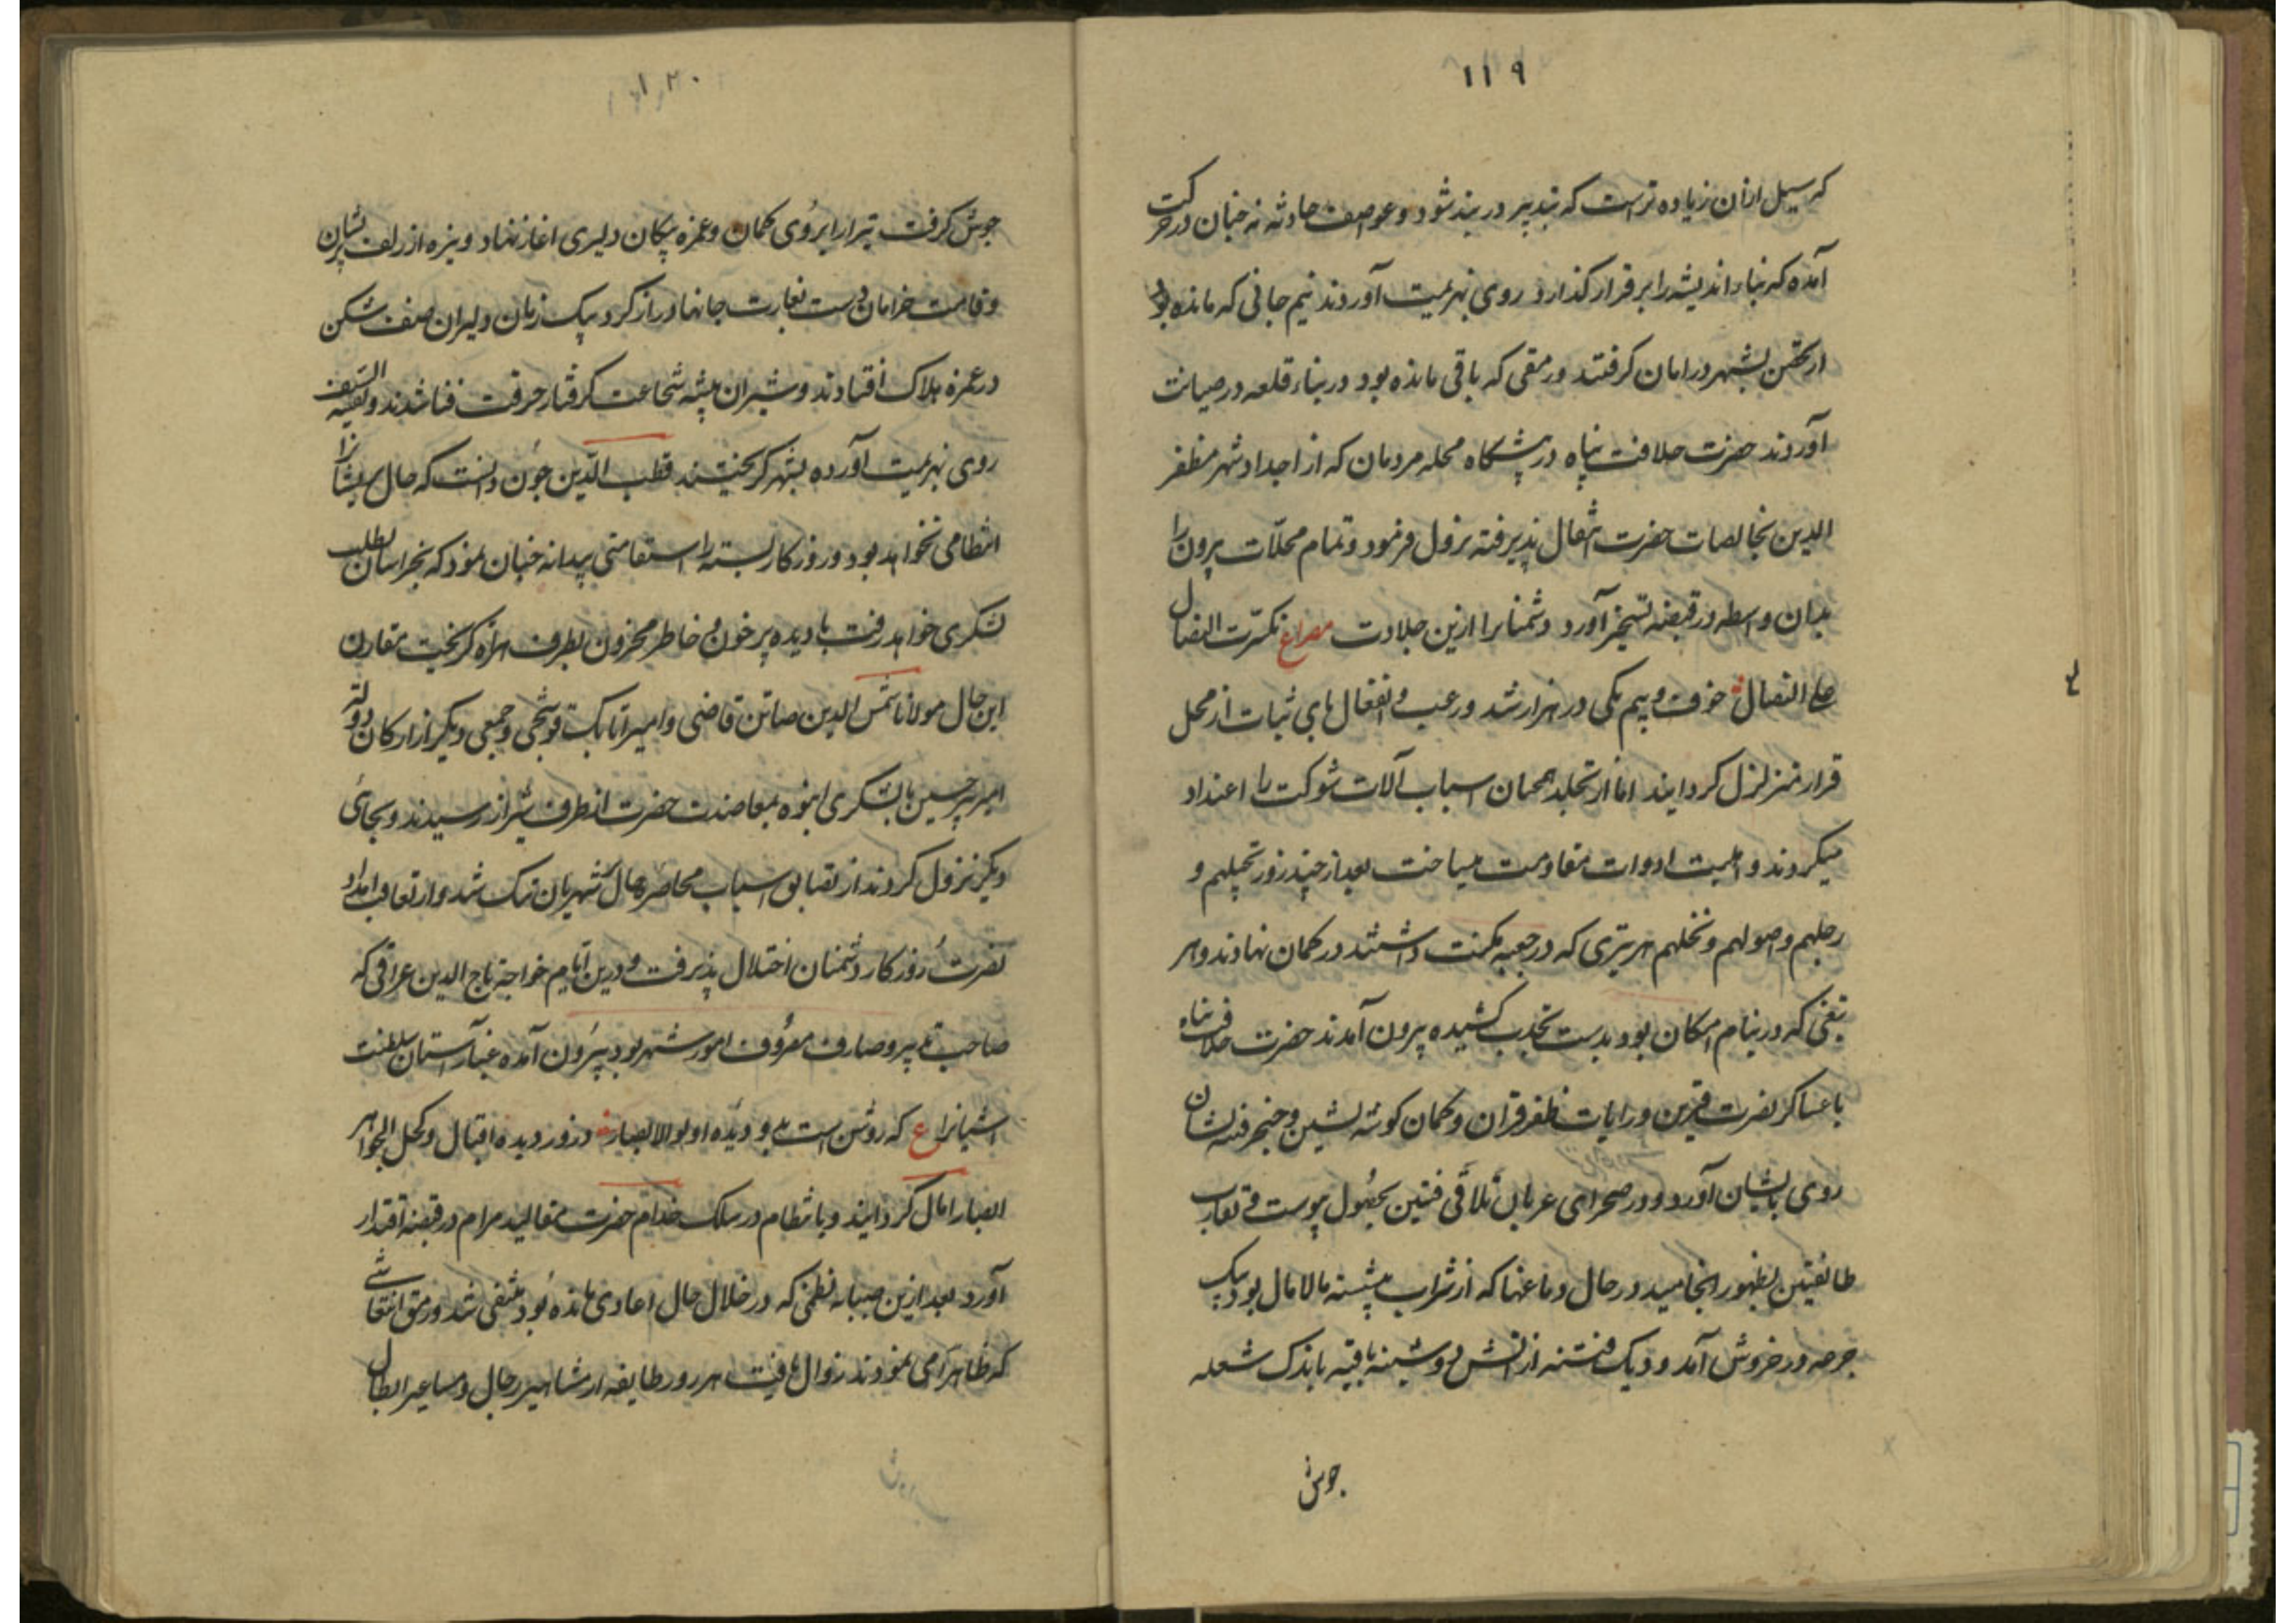 ١١٩
که سیل ازان زیاده ترست که بتدبیر در بند شود و عواصف حادثه نه چنان در حرکت
آمده که بناء اندیشه را بر قرار گذارد روی بهزیمت آوردند نیم جانی که مانده بود
از تحصن بشهر در امان گرفتند و رمقی که باقی مانده بود در بناء قلعه در صیانت
آوردند حضرت خلافت پناه در پیشگاه محله مردمان که از اجداد شهر مظفر
الدین بخالصات حضرت انتقال پذیرفته نزول فرمود و تمام محلات بیرون را
بدان واسطه در قبضه تسخیر آورد دشمنانرا ازین جلادت مصراع تکسرت النصال
علی النصال خوف و بیم یکی در هزار شد و رعب و انفعال پای ثبات از محل
قرار متزلزل گردانید اما از تجلد همچنان اسباب آلات شوکت را اعتداد
میکردند و اهبت ادوات مقاومت میساخت بعد از چند روز بخیلهم و
رجلهم و صولهم و نخلهم هر تیری که در جعبه مکنت داشتند در کمان نهادند و هر
تیغی که در نیام امکان بود بدست تجلد کشیده بیرون آمدند حضرت خلافت پناه
با عساکر نصرت قرین و رایات ظفر قران و کمان گوشه نشین و خنجر فتنه نشان
روی بایشان آورد و در صحرای عریان تلاقی فئتین بحصول پیوست و تقارب
طائفتین بظهور انجامید در حال دماغها که از شراب پیشینه مالامال بود بیک
جرعه در خروش آمد و دیک فتنه از آتش دوشینه بقیه باندک شعله
جوش
١٢٠
جوش گرفت تیر ار ابروی کمان و غمزه پیکان دلیری اغاز نهاد و نیزه از زلف پریشان
و قامت خرامان دست بغارت جانها دراز کرد بیک زمان دلیران صف شکن
در غمره هلاک افتادند و شیران بیشه شجاعت گرفتار حرقت فنا شدند و بقیة السیف
روی بهزیمت آورده بشهر گریختند قطب الدین چون دانست که حال ایشانرا
انتظامی نخواهد بود و روزکار بسته را استقامتی پیدا نه چنان نمود که بخراسان بطلب
لشکری خواهد رفت با دیده پر خون و خاطر محزون بطرف هراة گریخت مقارن
این حال مولانا شمس الدین صائن قاضی و امیر اتابک قوشچی و جمعی دیگر از ارکان دولت
امیر پیر حسین با لشکری انبوه بمعاضدت حضرت از طرف شیراز رسیدند و بجائی
دیگر نزول کردند از تضایق اسباب محاصره حال شهریان تنک شد و از تعاقب امداد
نصرت روزکار دشمنان اختلال پذیرفت و درین ایام خواجه تاج الدین عراقی که
صاحب تدبیر و صارف معروف امور شهر بود بیرون آمده غبار آستان سلطنت
آشیانرا ع که روشن است بدو دیده اولو الابصار درور دیده اقبال و کحل الجواهر
ابصار امال گردانید و بانتظام در سلک خدام حضرت مقالید مرام در قبضه اقتدار
آورد بعد ازین صبابه نظمی که در خلال حال اعادی مانده بود منتفی شد و رمق انتعاشی
که ظاهرا می نمودند زوال یافت هر روز طایفه از مشاهیر رجال و مساعیر ابطال